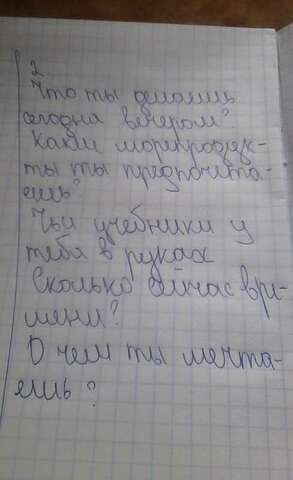 2
Что ты делаешь
сегодня вечером?
Какие морепродук-
ты ты предпочита-
ешь?
Чьи учебники у
тебя в руках
Сколько сйчас вре-
мени?
О чем ты мечта-
ешь?